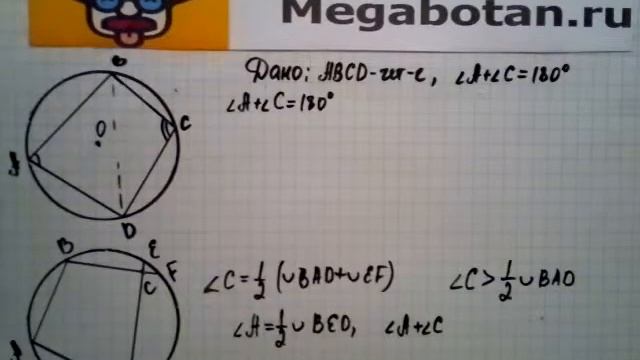 Megabotan.ru
Дано: ABCD-чет-к, ∠A+∠C=180°
∠A+∠C=180°
B
O
C
D
B
E
F
C
∠C=½(∪BAD+∪EF) ∠C>½∪BAD
∠A=½∪BED, ∠A+∠C